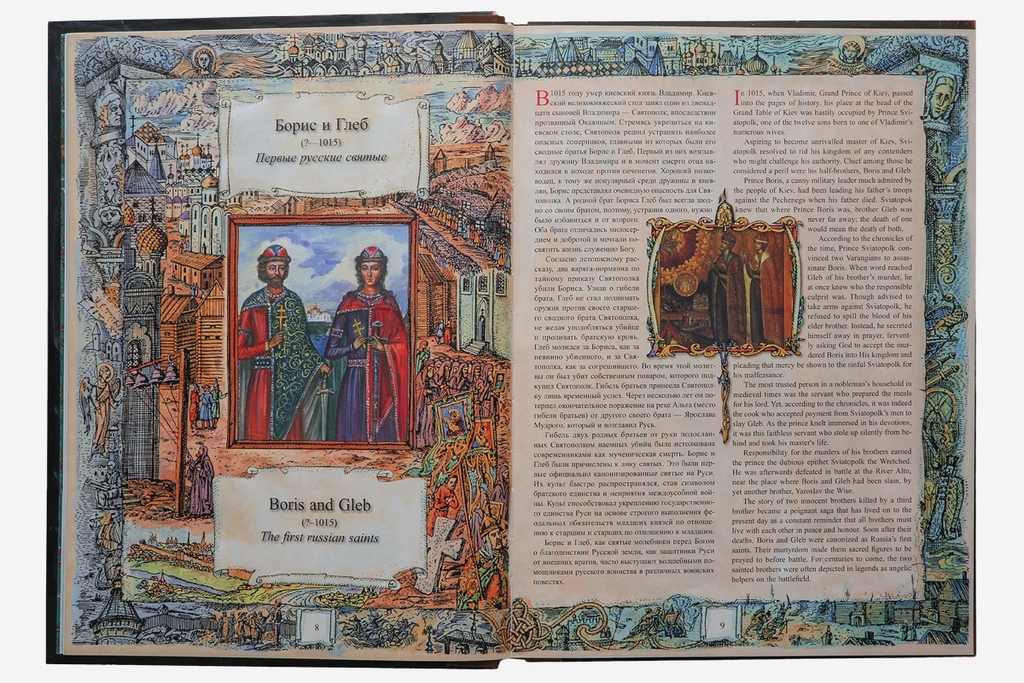 Борис и Глеб
(?—1015)
Первые русские святые
Boris and Gleb
(?–1015)
The first russian saints
8
В 1015 году умер киевский князь Владимир. Киев-
ский великокняжеский стол занял один из двенад-
цати сыновей Владимира — Святополк, впоследствии
прозванный Окаянным. Стремясь укрепиться на ки-
евском столе, Святополк решил устранить наиболее
опасных соперников, главными из которых были его
сводные братья Борис и Глеб. Первый из них возглав-
лял дружину Владимира и в момент смерти отца на-
ходился в походе против печенегов. Хороший полко-
водец, к тому же популярный среди дружины и киев-
лян, Борис представлял очевидную опасность для Свя-
тополка. А родной брат Бориса Глеб был всегда заод-
но со своим братом, поэтому, устранив одного, нужно
было избавиться и от второго.
Оба брата отличались милосер-
дием и добротой и мечтали по-
святить жизнь служению Богу.
Согласно летописному рас-
сказу, два варяга-норманна по
тайному приказу Святополка
убили Бориса. Узнав о гибели
брата, Глеб не стал поднимать
оружия против своего старше-
го сводного брата Святополка,
не желая уподобляться убийце
и проливать братскую кровь.
Глеб молился за Бориса, как за
невинно убиенного, и за Свя-
тополка, как за согрешившего. Во время этой молит-
вы он был убит собственным поваром, которого под-
купил Святополк. Гибель братьев принесла Святопол-
ку лишь временный успех. Через несколько лет он по-
терпел окончательное поражение на реке Альта (место
гибели братьев) от другого своего брата — Ярослава
Мудрого, который и возглавил Русь.
Гибель двух родных братьев от руки подослан-
ных Святополком наемных убийц была истолкована
современниками как мученическая смерть. Борис и
Глеб были причислены к лику святых. Это были пер-
вые официально канонизированные святые на Руси.
Их культ быстро распространился, став символом
братского единства и неприятия междоусобной вой-
ны. Культ способствовал укреплению государственно-
го единства Руси на основе строгого выполнения фе-
одальных обязательств младших князей по отноше-
нию к старшим и старших по отношению к младшим.
Борис и Глеб, как святые молебники перед Богом
о благоденствии Русской земли, как защитники Руси
от внешних врагов, часто выступают волшебными по-
мощниками русского воинства в различных воинских
повестях.
In 1015, when Vladimir, Grand Prince of Kiev, passed
into the pages of history, his place at the head of the
Grand Table of Kiev was hastily occupied by Prince Svi-
atopolk, one of the twelve sons born to one of Vladimir's
numerous wives.
Aspiring to become unrivalled master of Kiev, Svi-
atopolk resolved to rid his kingdom of any contenders
who might challenge his authority. Chief among those he
considered a peril were his half-brothers, Boris and Gleb.
Prince Boris, a canny military leader much admired by
the people of Kiev, had been leading his father's troops
against the Pechenegs when his father died. Sviatopok
knew that where Prince Boris was, brother Gleb was
never far away; the death of one
would mean the death of both.
According to the chronicles of
the time, Prince Sviatopolk con-
vinced two Varangians to assas-
sinate Boris. When word reached
Gleb of his brother's murder, he
at once knew who the responsible
culprit was. Though advised to
take arms against Sviatopolk, he
refused to spill the blood of his
elder brother. Instead, he secreted
himself away in prayer, fervent-
ly asking God to accept the mur-
dered Boris into His kingdom and
pleading that mercy be shown to the sinful Sviatopolk for
his malfeasance.
The most trusted person in a nobleman's household in
medieval times was the servant who prepared the meals
for his lord. Yet, according to the chronicles, it was indeed
the cook who accepted payment from Sviatopolk's men to
slay Gleb. As the prince knelt immersed in his devotions,
it was this faithless servant who stole up silently from be-
hind and took his master's life.
Responsibility for the murders of his brothers earned
the prince the dubious epithet Sviatopolk the Wretched.
He was afterwards defeated in battle at the River Alto,
near the place where Boris and Gleb had been slain, by
yet another brother, Yaroslav the Wise.
The story of two innocent brothers killed by a third
brother became a poignant saga that has lived on to the
present day as a constant reminder that all brothers must
live with each other in peace and honour. Soon after their
deaths, Boris and Gleb were canonized as Russia's first
saints. Their martyrdom made them sacred figures to be
prayed to before battle. For centuries to come, the two
sainted brothers were often depicted in legends as angelic
helpers on the battlefield.
9